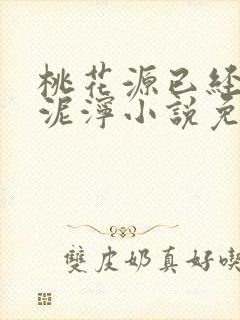 桃花源已経
泥濘小說免
雙皮奶真好喫